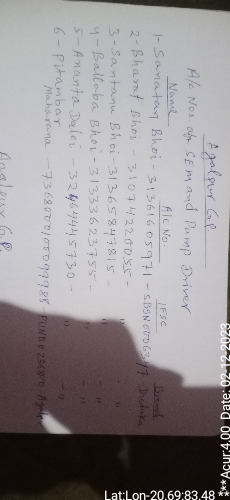 Agalpur G.P
A/c Nos of SEM and Pump Driver
Name A/c No. IFSC Branch
1 - Sanatan Bhoi - 31361605971 - SBIN0006
2 - Bharat Bhoi - 31074220055 -
3 - Santanu Bhoi - 31365847815 - "
4 - Ballaba Bhoi - 31333623755 - " - "
5 - Ananta Dalei - 32464445730 - " - "
6 - Pitambar
Maharana - 7368000100099985 -
Agalpur G.P
Lat:Lon-20.69:83.48
***Acur:4.00 Date: 02-12-2023